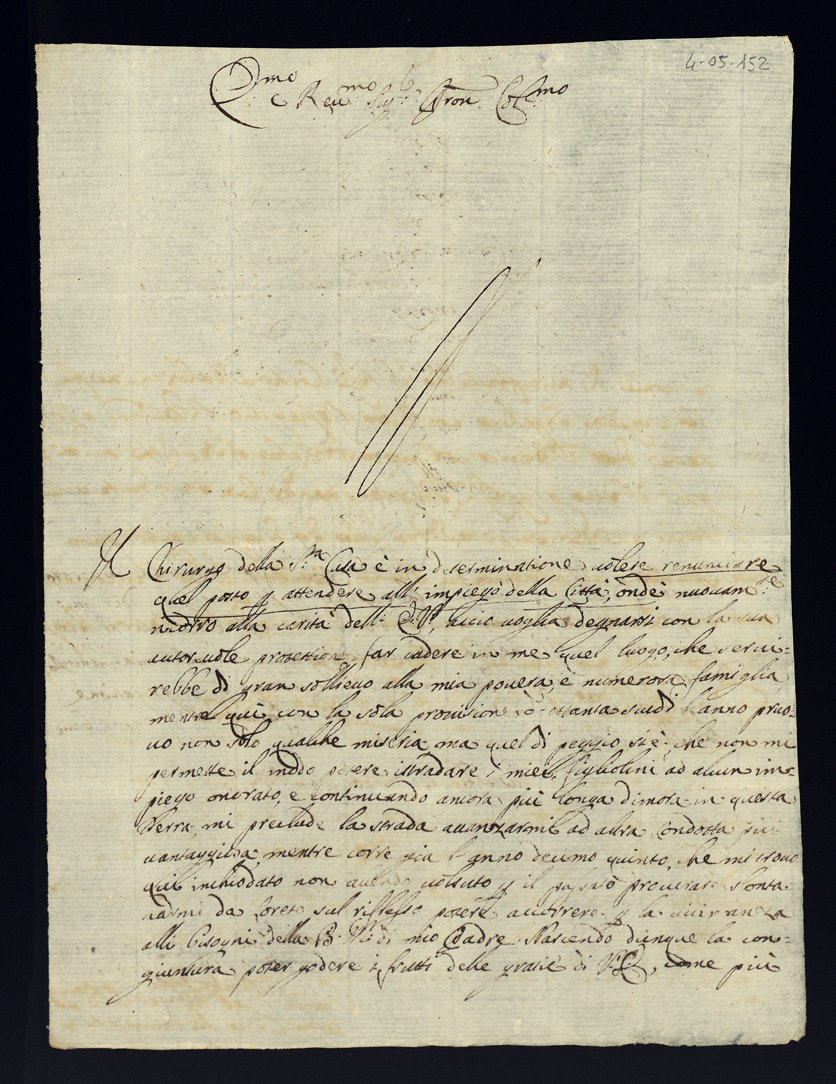 4-05-152
Em.mo e Rev.mo Sig.r Pron. Col.mo
Il Chirurgo della S.ta Casa è in determinatione volere renunciare
quel posto p attendere all' impiego della Città, onde nuovam.te
ricorro alla carità dell' E. V., acciò voglia degnarsi con la sua
autorevole protettione far cadere in me quel luogo, che servi-
rebbe di gran sollievo alla mia povera, e numerosa famiglia
mentre quì con la sola provisione di ottanta scudi l'anno pruo-
vo non solo qualche miseria, ma quel di peggio si è, che non mi
permette il modo potere istradare i miei figliolini ad alcun im-
piego onorato, e continuando ancora più longa dimora in questa
Terra, mi preclude la strada avanzarmi ad altra Condotta più
vantaggiosa, mentre corre già l'anno decimo quinto, che mi trovo
quì inchiodato non avendo voluto p il passato procurare slonta-
narmi da Loreto sul riflesso potere accorrere p la vicinanza
alli bisogni della B. M. di mio Padre. Nascendo dunque la con-
giuntura poter godere i frutti delle gratie di V. E., come più